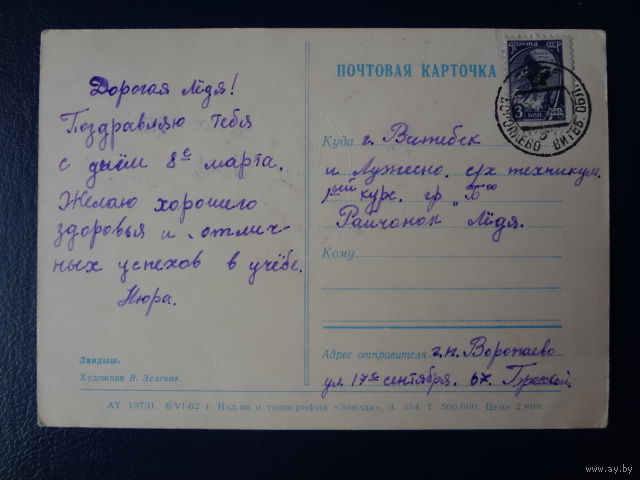 ПОЧТОВАЯ КАРТОЧКА
ПОЧТА СССР
3 коп. 1961
ВИТЕБ. ОБЛ.
Дорогая Лёдя!
Поздравляю тебя
с днём 8е марта.
Желаю хорошего
здоровья и отлич-
ных успехов в учёбе.
Нюра.
Ландыш.
Художник В. Зеленов.
Куда г. Витебск
п Лужесно. с/х техникум.
курс. гр „Б"
Райчонок Лёдя.
Кому
Адрес отправителя г.п. Воропаево
ул. 17го сентября. 67.
АТ 13731. 6/VI-62 г. Изд-во и типография «Звязда». З. 354. Т. 500.000. Цена 2 коп.
www.ay.by